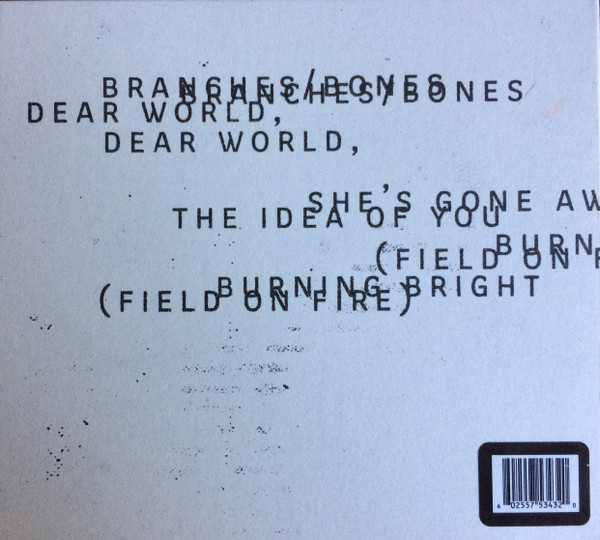 BRANCHES/BONES
BRANCHES/BONES
DEAR WORLD,
DEAR WORLD,
SHE'S GONE AW
THE IDEA OF YOU
BURN
(FIELD ON F
BURNING BRIGHT
(FIELD ON FIRE)
6 02557 53432 0